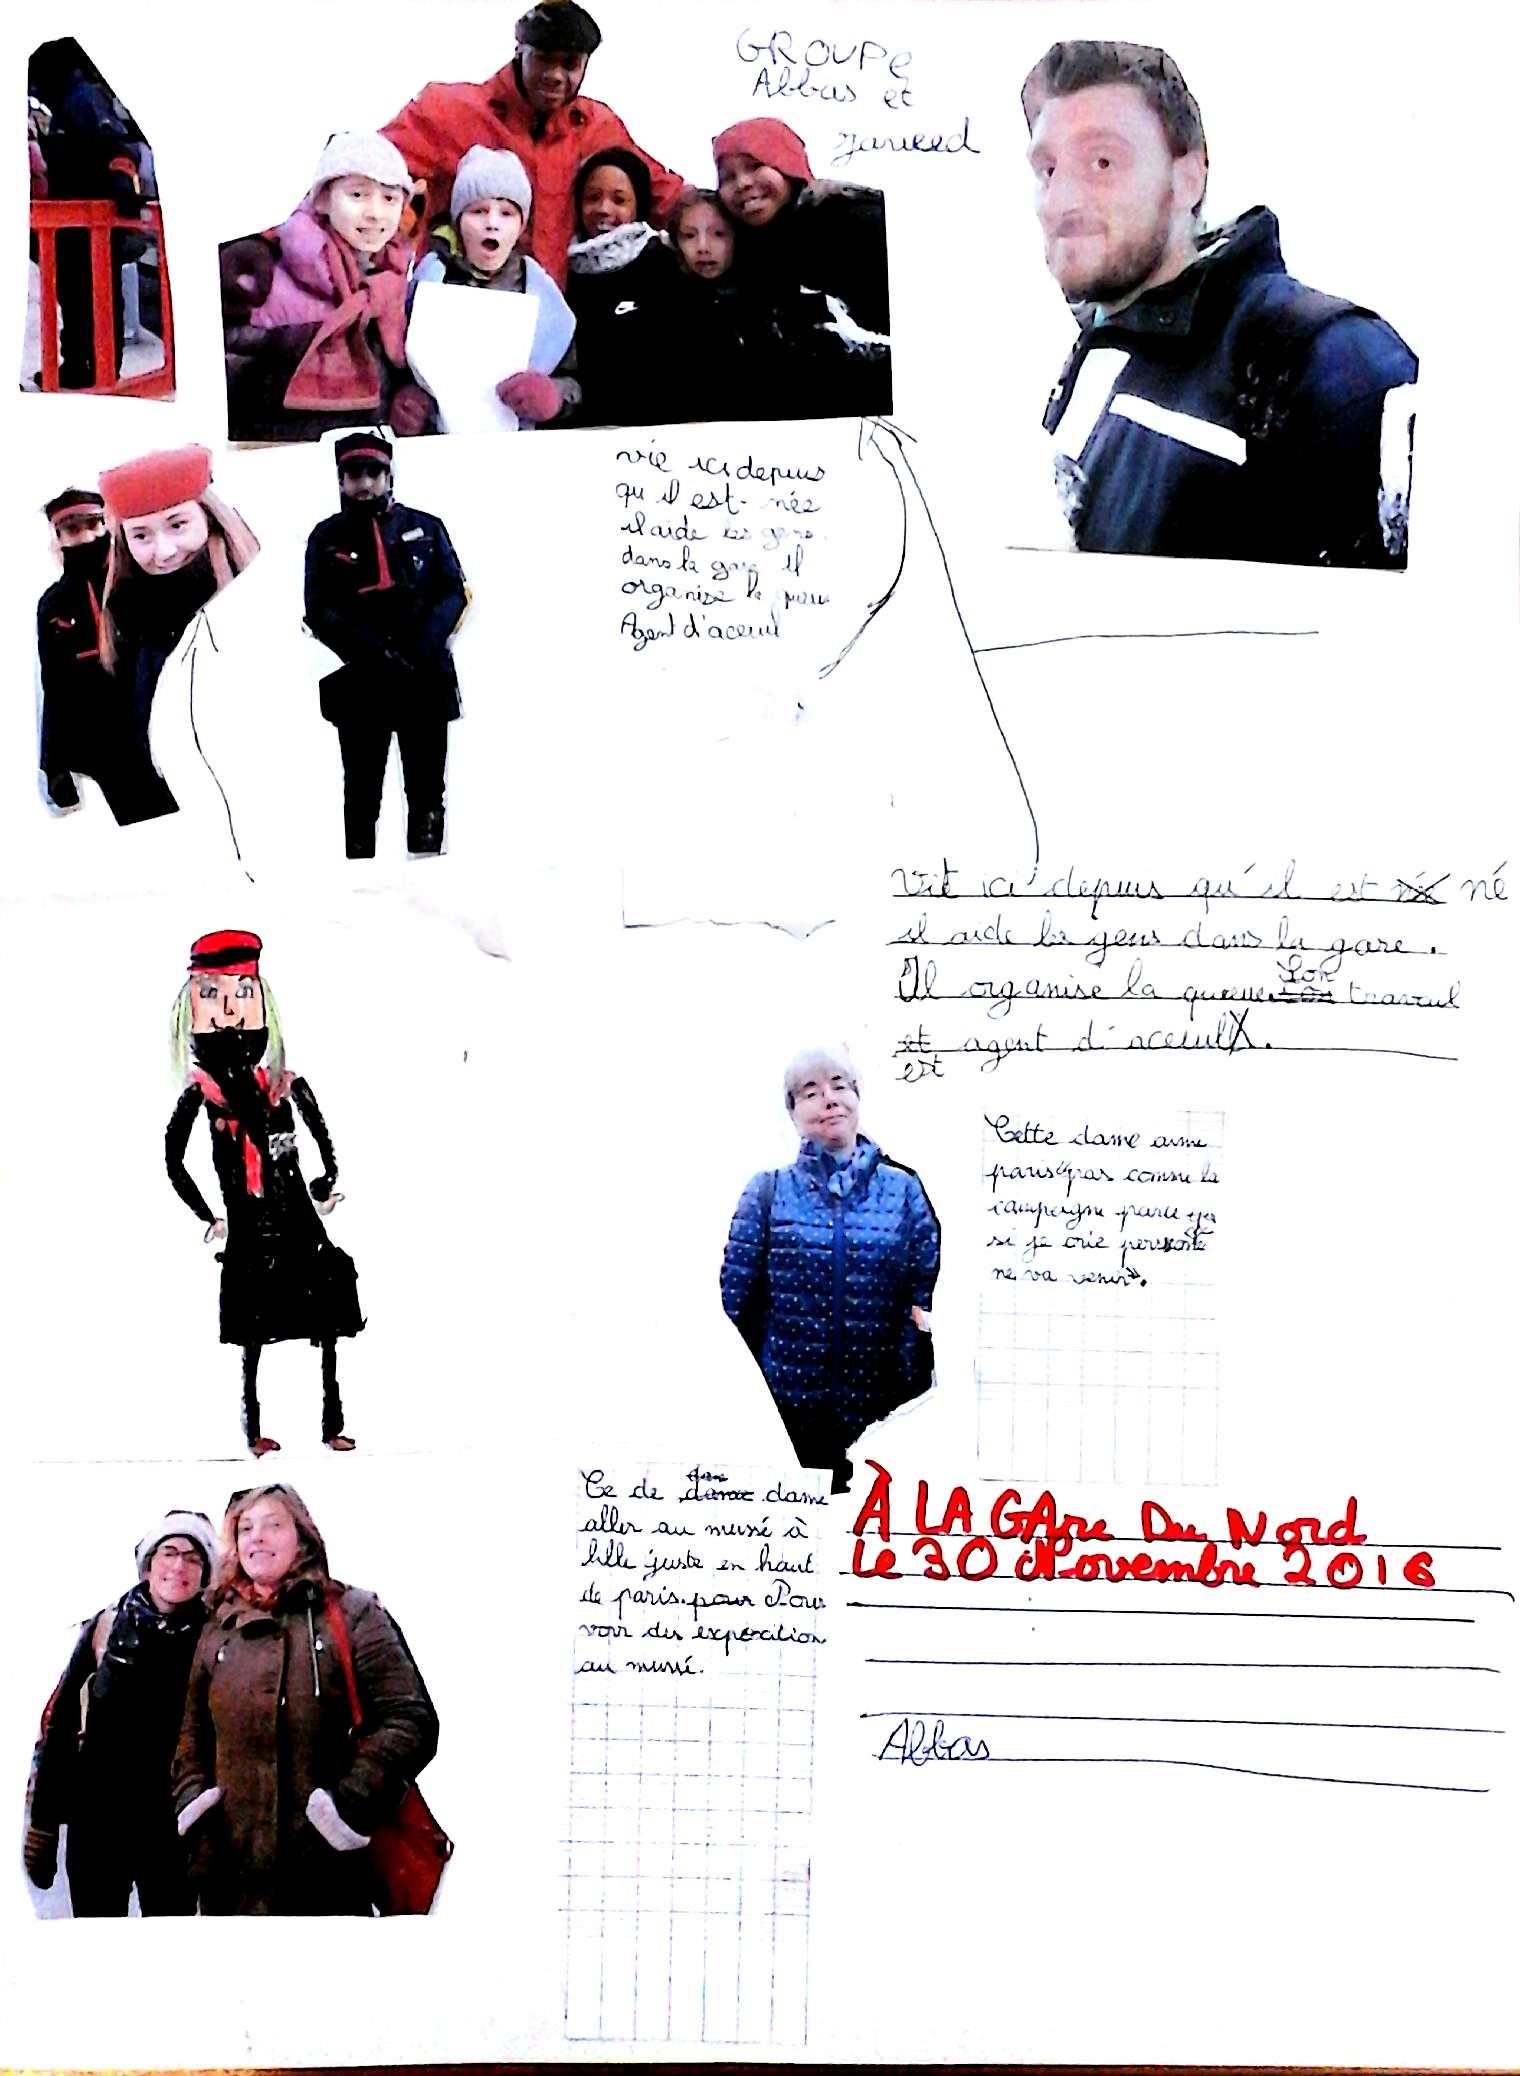 GROUPe
Abbas et
Jaweed
vie ici depuis
qu'il est née
il aide les gens
dans la gare il
organise la queue
Agent d'aceuil
Vit ici depuis qu'il est née né
il aide les gens dans la gare.
Il organise la queue Son travail
et agent d'aceuil.
est
Cette dame aime
paris "pas comme la
campagne parce que
si je crie personne
ne va venir".
Ce de dame dame
aller au mussé à
lille juste en haut
de paris. pour Pour
voir des exposition
au mussé.
À LA GAre Du Nord
Le 30 Novembre 2016
Abbas